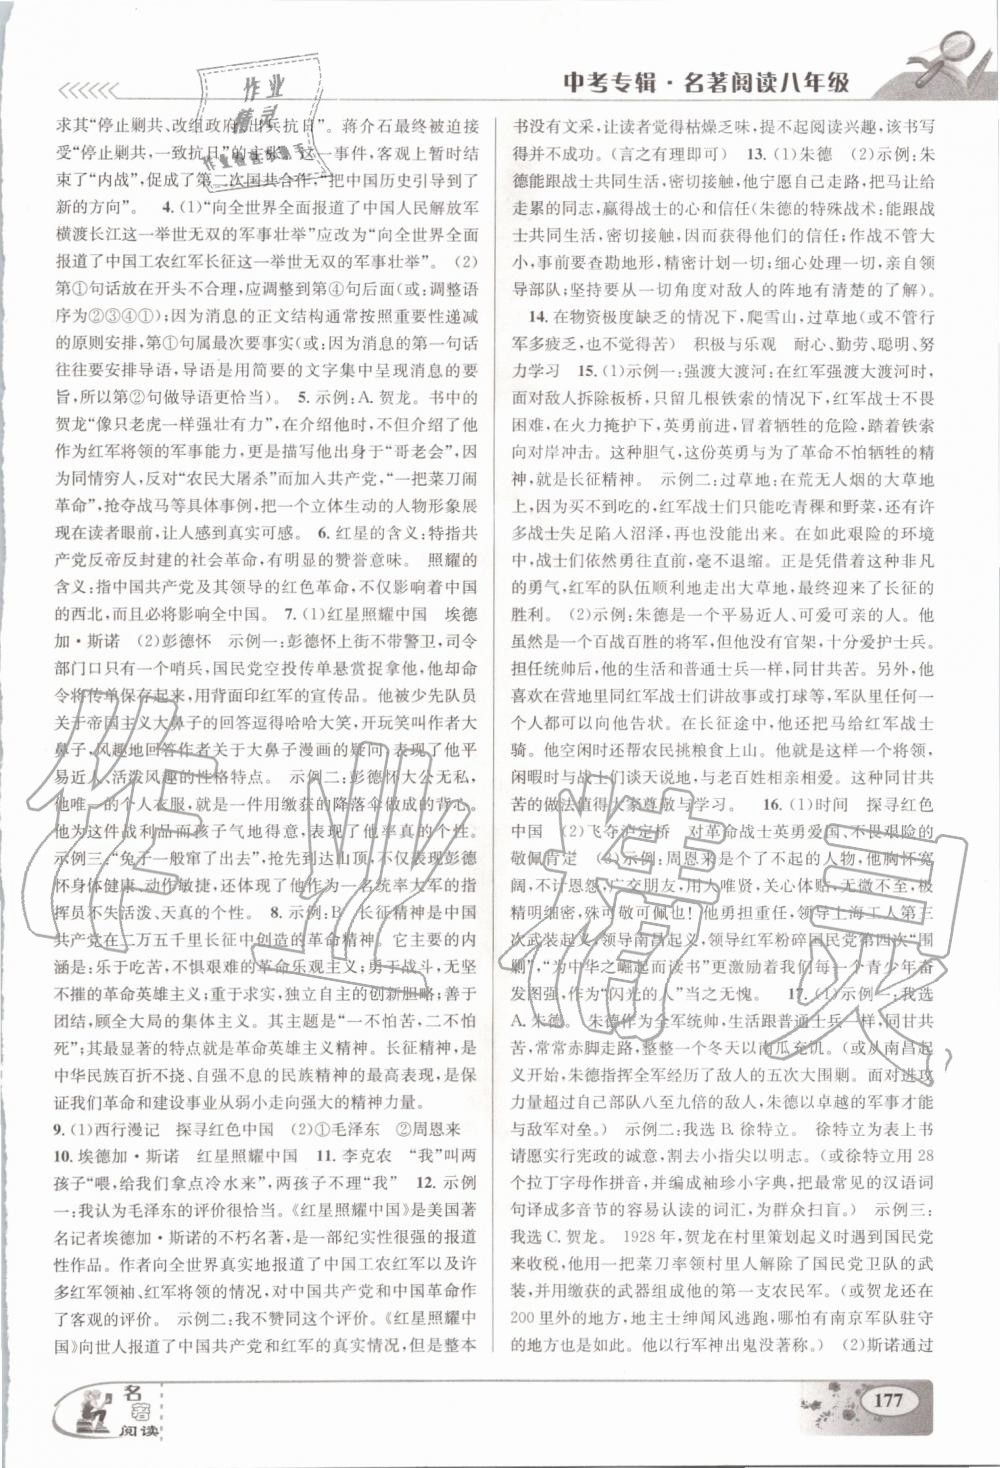 中考专辑·名著阅读八年级
作业
精灵
求其“停止剿共、改组政府、出兵抗日”。蒋介石最终被迫接
受“停止剿共,一致抗日”的主张。这一事件,客观上暂时结
束了“内战”,促成了第二次国共合作,“把中国历史引导到了
新的方向”。 4.(1)“向全世界全面报道了中国人民解放军
横渡长江这一举世无双的军事壮举”应改为“向全世界全面
报道了中国工农红军长征这一举世无双的军事壮举”。 (2)
第①句话放在开头不合理,应调整到第④句后面(或:调整语
序为②③④①);因为消息的正文结构通常按照重要性递减
的原则安排,第①句属最次要的背景,而消息的第一句话
往往要安排导语,导语是用简要的文字集中呈现消息的要
旨,所以第②句做导语更恰当)。 5. 示例:A. 贺龙。书中的
贺龙“像只老虎一样强壮有力”,在介绍他时,不但介绍了他
作为红军将领的军事能力,而且描写他出身于“哥老会”,
同情穷人,反对“农民大屠杀”而加入共产党,“一把菜刀闹
革命”,抢夺战马等具体事例,把一个立体生动的人物形象展
现在读者眼前,让人感到真实可感。 6. 红星的含义:特指共
产党反帝反封建的社会革命,有明显的赞誉意味。 照耀的
含义:指中国共产党及其领导的红色革命,不仅影响了中国
的西北,而且必将影响全中国。 7.(1)红星照耀中国 埃德
加·斯诺 (2)彭德怀 示例一:彭德怀上街不带警卫,司令
部门口只有一个哨兵,国民党空投传单悬赏捉拿他,他却命
令将传单保存起来,用背面印红军的宣传品。他被少先队员
关于帝国主义大鼻子的回答逗得哈哈大笑,开玩笑叫作者大
鼻子,风趣地回答作者关于大鼻子漫画的疑问,表现了他平
易近人、活泼风趣的性格特点。 示例二:彭德怀大公无私,
他唯一的个人衣服,就是一件用缴获的降落伞做成的背心。
他为这件战利品而孩子气地得意,表现了他率真的个性。
示例三:“兔子一般窜了出去”,抢先到达山顶,不仅表现彭德
怀身体健康、动作敏捷,还体现了他作为一名统率大军的指
挥员不失活泼、天真的个性。 8. 示例:B 长征精神是中国
共产党在二万五千里长征中创造的革命精神。它主要的内
涵是:乐于吃苦,不惧艰难的革命乐观主义;勇于战斗,无坚
不摧的革命英雄主义;重于求实,独立自主的创新胆略;善于
团结,顾全大局的集体主义。其中,“一不怕苦,二不怕
死”;其最显著的特点就是革命英雄主义精神。长征精神,是
中华民族百折不挠、自强不息的民族精神的最高表现,是保
证我们革命和建设事业从弱小走向强大的精神力量。
9.(1)西行漫记 探寻红色中国 (2)①毛泽东 ②周恩来
10. 埃德加·斯诺 红星照耀中国 11. 李克农 “我”叫两
孩子“喂,给我们拿点冷水来”,两孩子不理“我” 12. 示例
一:我认为毛泽东的评价很恰当。《红星照耀中国》是美国著
名记者埃德加·斯诺的不朽名著,是一部纪实性很强的报道
性作品。作者向全世界真实地报道了中国工农红军以及许
多红军领袖、红军将领的情况,对中国共产党和中国革命作
了客观的评价。 示例二:我不赞同这个评价。《红星照耀中
国》向世人报道了中国共产党和红军的真实情况,但是整本
书没有文采,让读者觉得枯燥乏味,提不起阅读兴趣,该书写
得并不成功。(言之有理即可) 13.(1)朱德 (2)示例:朱
德能跟战士共同生活,密切接触,他宁愿自己走路,把马让给
走累的同志,赢得战士的心和信任(朱德的特殊战术:能跟战
士共同生活,密切接触,因而获得他们的信任;作战不管大
小,事前要查勘地形,精密计划一切;细心处理一切,亲自领
导部队;坚持要从一切角度对敌人的阵地有清楚的了解)。
14. 在物资极度缺乏的情况下,爬雪山,过草地(或不管行
军多疲乏,也不觉得苦) 积极与乐观 耐心、勤劳、聪明、努
力学习 15.(1)示例一:强渡大渡河:在红军强渡大渡河时,
面对敌人拆除板桥,只剩几根铁索的情况下,红军战士不畏
困难,在火力掩护下,英勇前进,冒着牺牲的危险,踏着铁索
向对岸冲击。这种胆气,这份英勇与为了革命不怕牺牲的精
神,就是长征精神。 示例二:过草地:在荒无人烟的大草地,
因为买不到吃的,红军战士们只能吃青稞和野菜,还有许
多战士失足陷入沼泽,再也没能醒来。在如此艰险的环境
中,战士们依然勇往直前,毫不退缩。正是凭借着这种非凡
的勇气,红军的队伍顺利地走出大草地,最终取得了长征的
胜利。 (2)示例:朱德是一个平易近人、可爱可亲的人。他
虽然是一个百战百胜的将军,但他没有官架,十分爱护士兵。
担任统帅后,他的生活和普通士兵一样,同甘共苦。另外,他
喜欢在营地里同红军战士们讲故事或打球等,军队里任何一
个人都可以向他告状。在长征途中,他还把马给红军战士
骑。他空闲时还帮农民挑粮食上山。他就是这样一个将领,
闲暇时与战士们谈天说地,与老百姓相处和善。这种同甘共
苦的做法值得大家尊敬与学习。 16.(1)时间 探寻红色
中国 (2)飞夺泸定桥 对革命战士英勇爱国、不畏艰险的
敬佩肯定 (3)示例:周恩来是个了不起的人物,他胸怀宽
阔,不计恩怨,广交朋友,用人唯贤,关心体贴,无微不至,经
受磨难,殊可敬可佩也!他勇担重任,领导上海工人第三
次武装起义,领导南昌起义,领导红军粉碎国民党第四次“围
剿”,“为中华之崛起而读书”更激励着我们每一个青少年奋
发图强,作为“闪光的人”当之无愧。 17.(1)示例一:我选
A. 朱德。 朱德作为全军统帅,生活跟普通士兵一样,同甘共
苦,常常赤脚走路,整整一个冬天以南瓜充饥。(或从南昌起
义,朱德指挥全军经历了敌人的五次大围剿。面对进攻
力量超过自己部队八至九倍的敌人,朱德以卓越的军事才能
与敌军对垒。) 示例二:我选 B. 徐特立。 徐特立为表上书
请愿实行宪政的诚意,割去小指尖上一截,断指血书。(或用28
个拉丁字母作拼音,并编成袖珍小字典,把最常见的汉语词
句译成多音节的容易认读的词汇,为群众扫盲。) 示例三:
我选 C. 贺龙。 1928 年,贺龙在村里策划起义时遇到国民党
来收税,他用一把菜刀率领村里人解除了国民党卫队的武
装,并缴获的武器组成他的第一支农民军。(或贺龙还在
200 里外的地方,地主士绅闻风逃跑,哪怕有南京军队驻守
的地方也是如此。他以行军神出鬼没著称。) (2)斯诺通过
名著
阅读
177
作业精灵